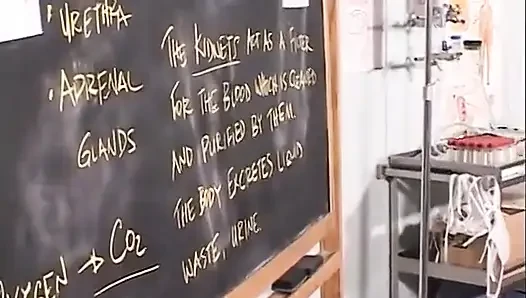 • URETHRA
• ADRENAL
GLANDS
OXYGEN → CO2
THE KIDNEYS ACT AS A FILTER
FOR THE BLOOD WHICH IS CLEANED
AND PURIFIED BY THEM.
THE BODY EXCRETES LIQUID
WASTE, URINE.